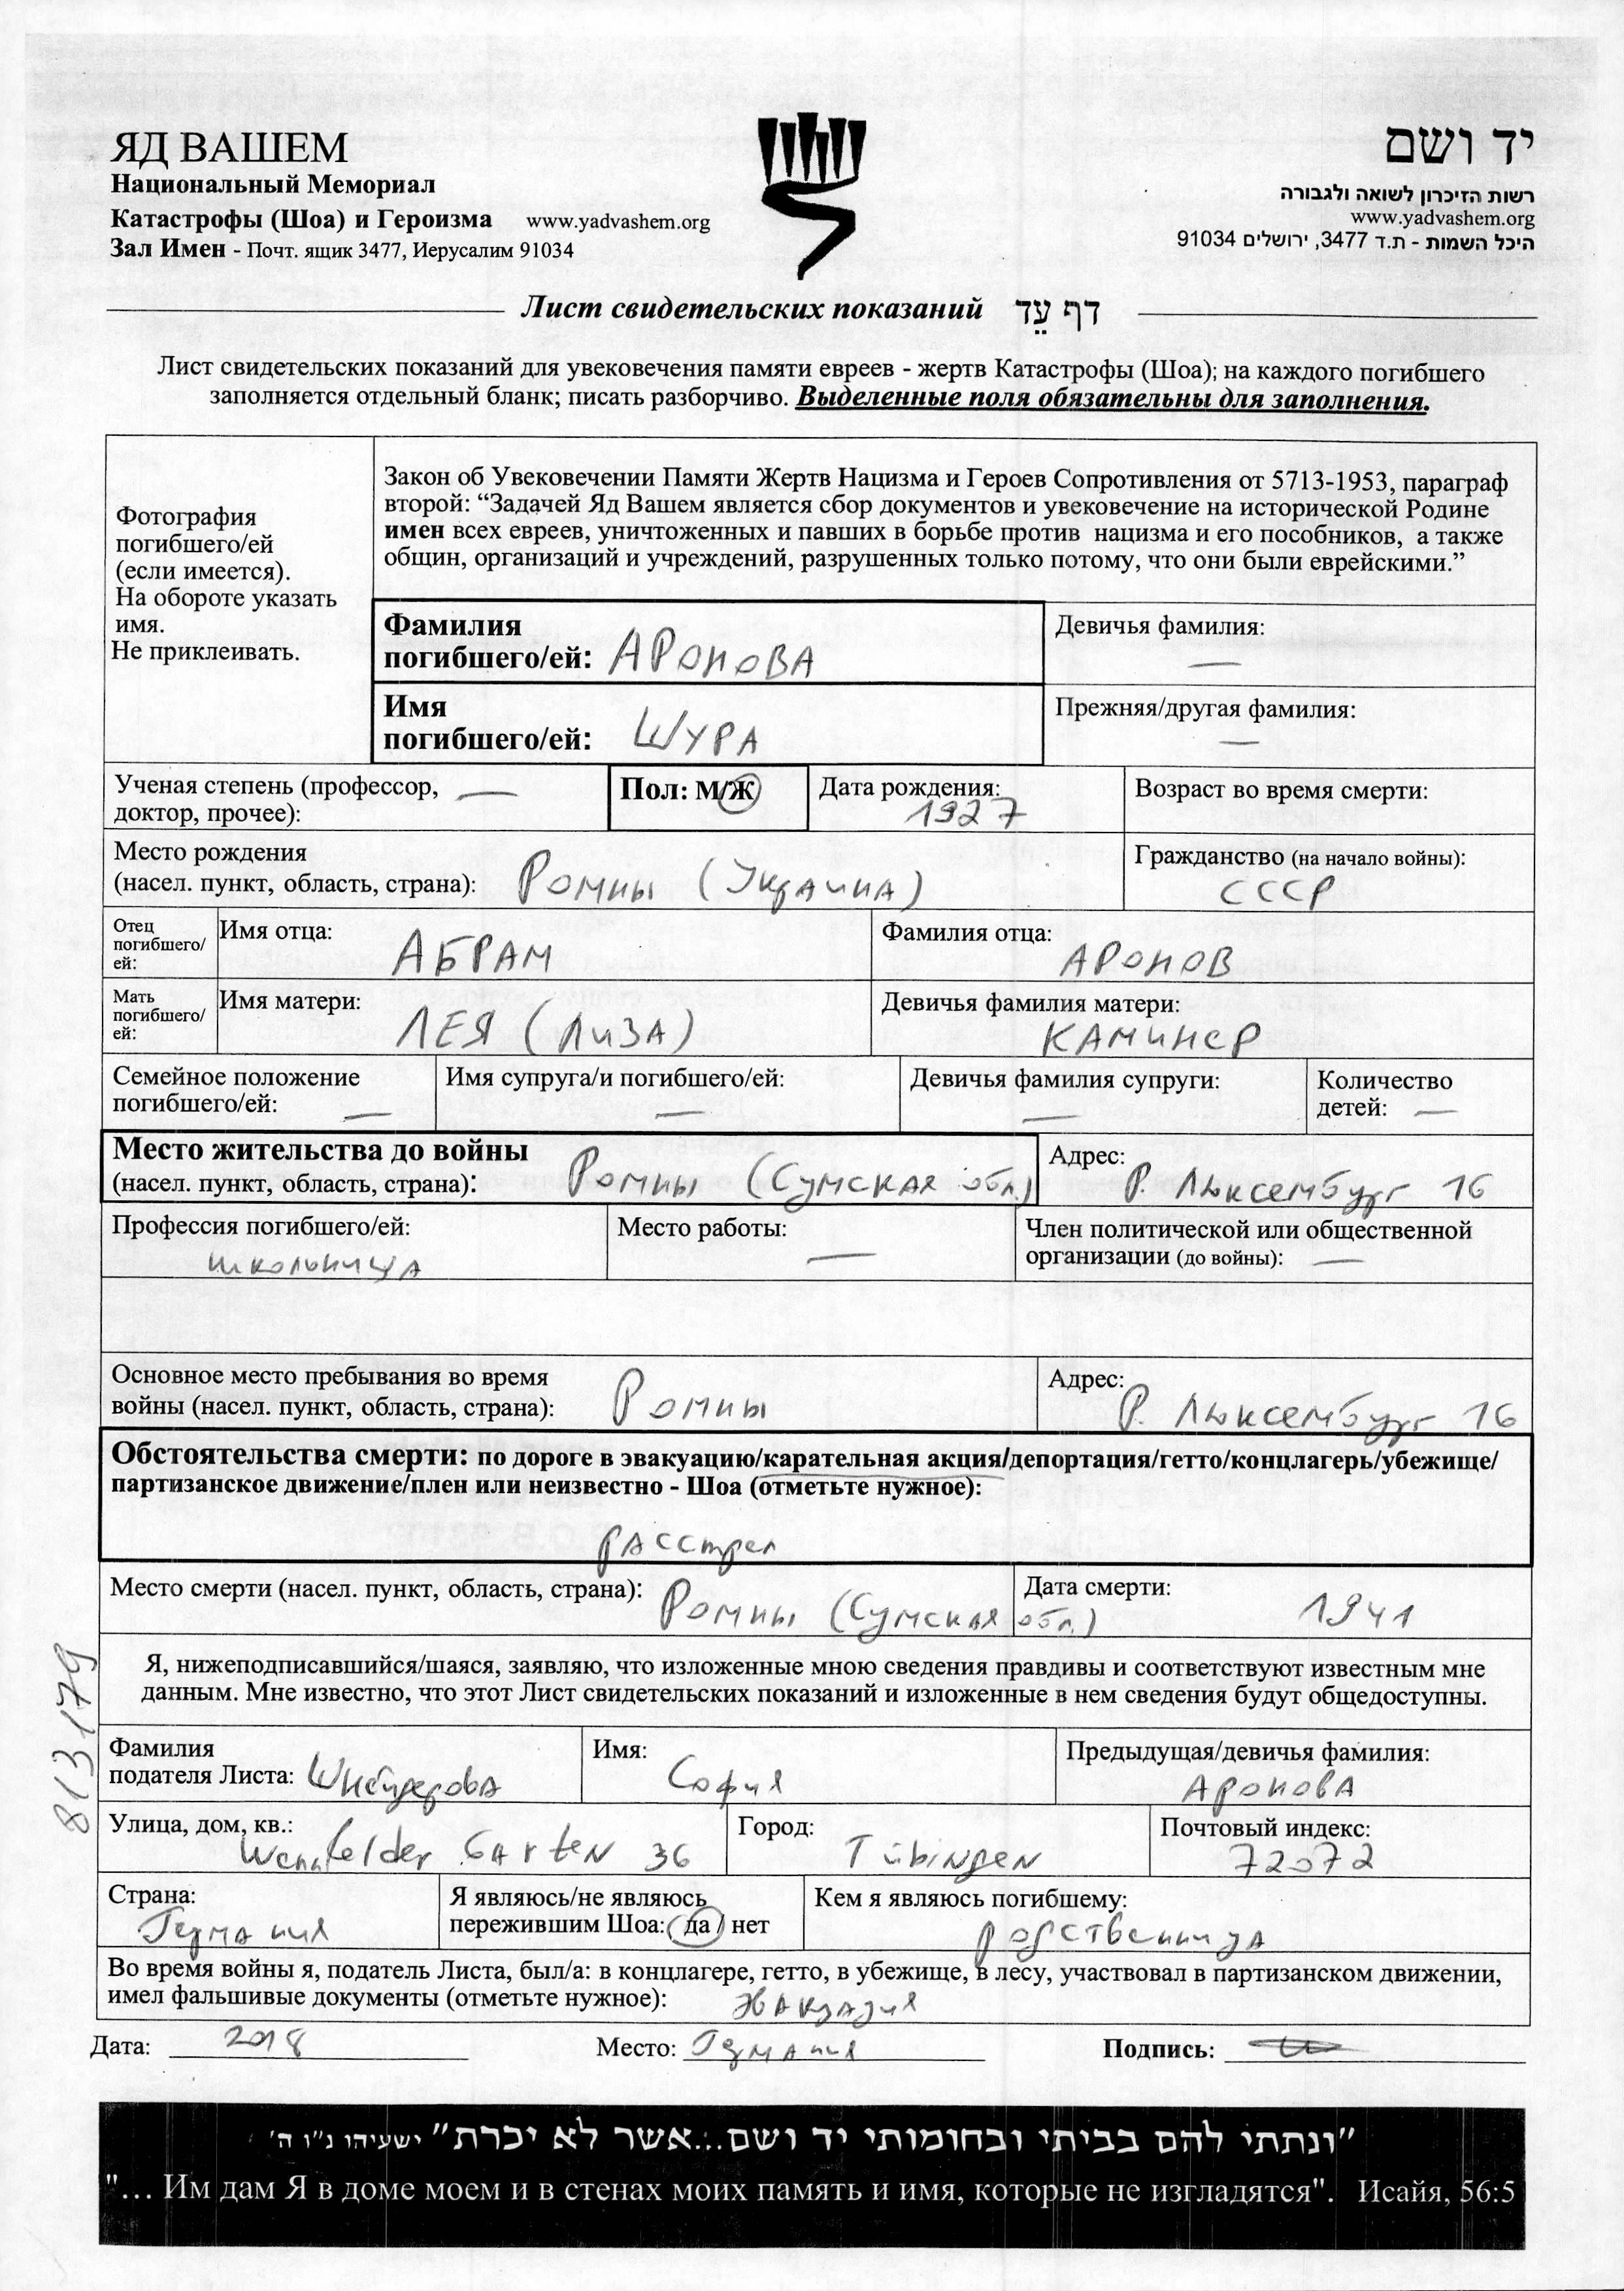 ЯД ВАШЕМ
Национальный Мемориал
Катастрофы (Шоа) и Героизма www.yadvashem.org
Зал Имен - Почт. ящик 3477, Иерусалим 91034
יד ושם
רשות הזיכרון לשואה ולגבורה
www.yadvashem.org
היכל השמות - ת.ד 3477, ירושלים 91034
Лист свидетельских показаний דף עֵד
Лист свидетельских показаний для увековечения памяти евреев - жертв Катастрофы (Шоа); на каждого погибшего
заполняется отдельный бланк; писать разборчиво. Выделенные поля обязательны для заполнения.
Фотография
погибшего/ей
(если имеется).
На обороте указать
имя.
Не приклеивать.
Закон об Увековечении Памяти Жертв Нацизма и Героев Сопротивления от 5713-1953, параграф
второй: “Задачей Яд Вашем является сбор документов и увековечение на исторической Родине
имен всех евреев, уничтоженных и павших в борьбе против нацизма и его пособников, а также
общин, организаций и учреждений, разрушенных только потому, что они были еврейскими.”
Фамилия
погибшего/ей: АРОНОВА
Девичья фамилия:
—
Имя
погибшего/ей: ШУРА
Прежняя/другая фамилия:
—
Ученая степень (профессор, —
доктор, прочее):
Пол: М/Ж
Дата рождения:
1927
Возраст во время смерти:
Место рождения
(насел. пункт, область, страна): Ромны (Украина)
Гражданство (на начало войны):
СССР
Отец
погибшего/
ей:
Имя отца:
АБРАМ
Фамилия отца:
АРОНОВ
Мать
погибшего/
ей:
Имя матери:
ЛЕЯ (ЛИЗА)
Девичья фамилия матери:
КАМИНЕР
Семейное положение
погибшего/ей: —
Имя супруга/и погибшего/ей:
—
Девичья фамилия супруги:
—
Количество
детей: —
Место жительства до войны
(насел. пункт, область, страна): Ромны (Сумская обл.)
Адрес:
Р. Люксембург 16
Профессия погибшего/ей:
школьница
Место работы:
—
Член политической или общественной
организации (до войны): —
Основное место пребывания во время
войны (насел. пункт, область, страна): Ромны
Адрес:
Р. Люксембург 16
Обстоятельства смерти: по дороге в эвакуацию/карательная акция/депортация/гетто/концлагерь/убежище/
партизанское движение/плен или неизвестно - Шоа (отметьте нужное):
расстрел
Место смерти (насел. пункт, область, страна): Ромны (Сумская обл.)
Дата смерти:
1941
Я, нижеподписавшийся/шаяся, заявляю, что изложенные мною сведения правдивы и соответствуют известным мне
данным. Мне известно, что этот Лист свидетельских показаний и изложенные в нем сведения будут общедоступны.
813179
Фамилия
подателя Листа: Шнейдерова
Имя:
София
Предыдущая/девичья фамилия:
АРОНОВА
Улица, дом, кв.:
Wennfelder Garten 36
Город:
Tübingen
Почтовый индекс:
72072
Страна:
Германия
Я являюсь/не являюсь
пережившим Шоа: да / нет
Кем я являюсь погибшему:
родственница
Во время войны я, податель Листа, был/а: в концлагере, гетто, в убежище, в лесу, участвовал в партизанском движении,
имел фальшивые документы (отметьте нужное): эвакуация
Дата: 2018
Место: Германия
Подпись:
"ונתתי להם בביתי ובחומותי יד ושם...אשר לא יכרת" ישעיהו נ"ו ה'
"... Им дам Я в доме моем и в стенах моих память и имя, которые не изгладятся". Исайя, 56:5